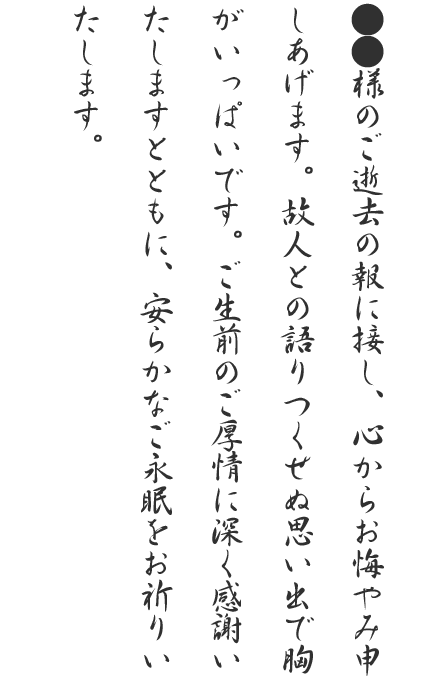 ●●様のご逝去の報に接し、心からお悔やみ申
しあげます。故人との語りつくせぬ思い出で胸
がいっぱいです。ご生前のご厚情に深く感謝い
たしますとともに、安らかなご永眠をお祈りい
たします。